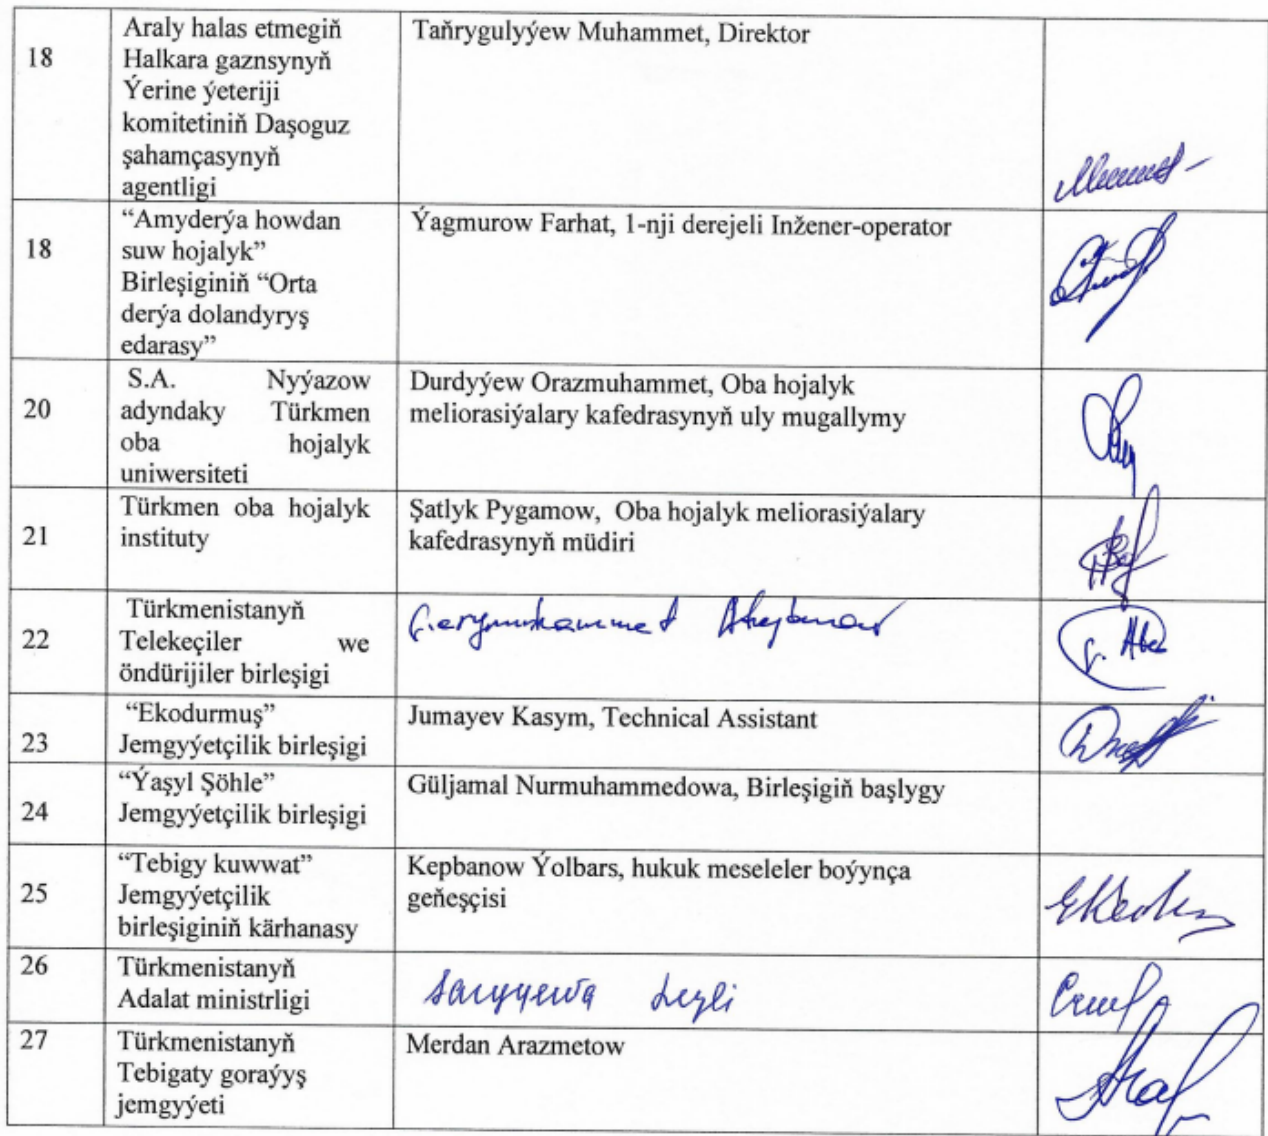 18
Araly halas etmegiň
Halkara gaznsynyň
Ýerine ýeteriji
komitetiniň Daşoguz
şahamçasynyň
agentligi
Taňrygulyýew Muhammet, Direktor
18
“Amyderýa howdan
suw hojalyk”
Birleşiginiň “Orta
derýa dolandyryş
edarasy”
Ýagmurow Farhat, 1-nji derejeli Inžener-operator
20
S.A. Nyýazow
adyndaky Türkmen
oba hojalyk
uniwersiteti
Durdyýew Orazmuhammet, Oba hojalyk
meliorasiýalary kafedrasynyň uly mugallymy
21
Türkmen oba hojalyk
instituty
Şatlyk Pygamow, Oba hojalyk meliorasiýalary
kafedrasynyň müdiri
22
Türkmenistanyň
Telekeçiler we
öndürijiler birleşigi
23
“Ekodurmuş”
Jemgyýetçilik birleşigi
Jumayev Kasym, Technical Assistant
24
“Ýaşyl Şöhle”
Jemgyýetçilik birleşigi
Güljamal Nurmuhammedowa, Birleşigiň başlygy
25
“Tebigy kuwwat”
Jemgyýetçilik
birleşiginiň kärhanasy
Kepbanow Ýolbars, hukuk meseleler boýynça
geňeşçisi
26
Türkmenistanyň
Adalat ministrligi
27
Türkmenistanyň
Tebigaty goraýyş
jemgyýeti
Merdan Arazmetow